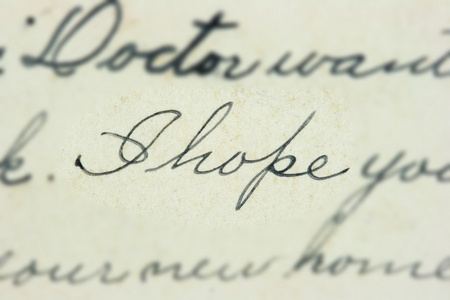 Doctor want
k. I hope you
your new home